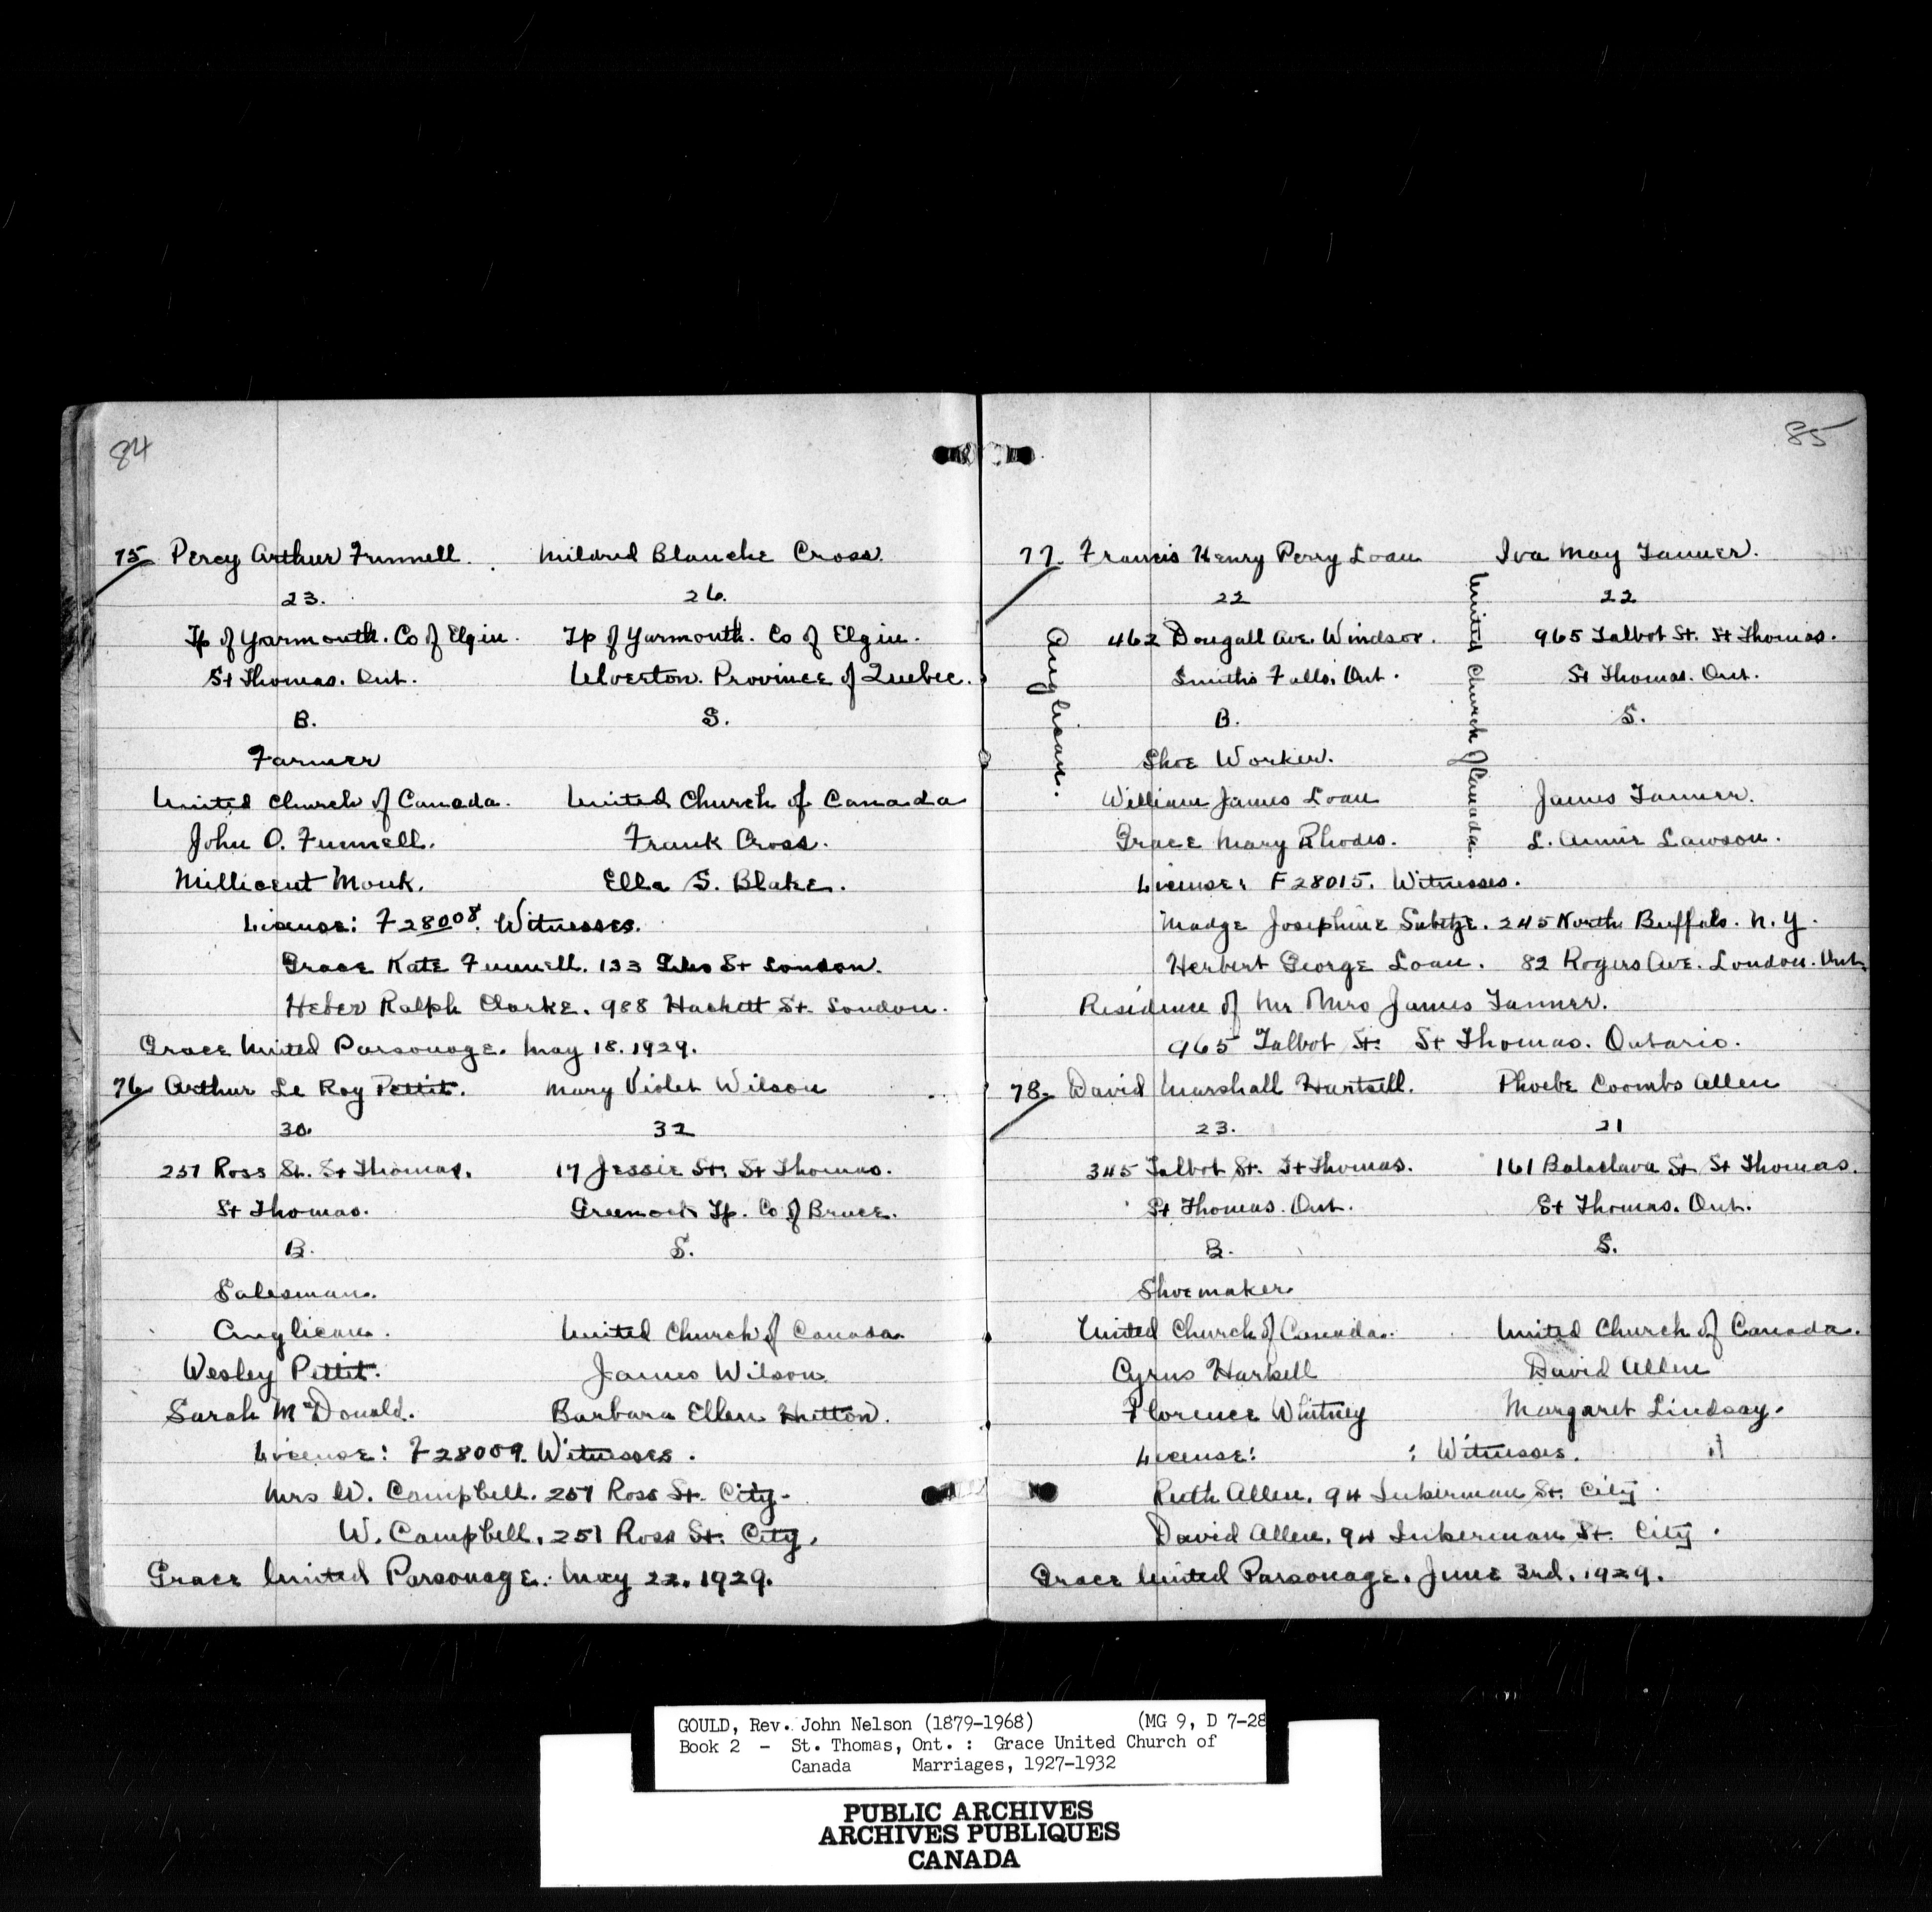 84
75 Percy Arthur Funnell. Mildred Blanche Cross.
23. 26.
Tp of Yarmouth. Co of Elgin. Tp of Yarmouth. Co of Elgin.
St Thomas. Ont. Ulverton. Province of Quebec.
B. S.
Farmer
United Church of Canada. United Church of Canada
John O. Funnell. Frank Cross.
Millicent Monk. Ella S. Blake.
License: F 28008. Witnesses.
Grace Kate Funnell. 133 St London.
Heber Ralph Clarke. 988 Hackett St. London.
Grace United Parsonage. May 18. 1929.
76 Arthur Le Roy Pettit. Mary Violet Wilson
30. 32
257 Ross St. St Thomas. 17 Jessie St. St Thomas.
St Thomas. Greenock Tp. Co of Bruce.
B. S.
Salesman.
Anglican. United Church of Canada.
Wesley Pettit. James Wilson
Sarah McDonald. Barbara Ellen Hutton.
License: F 28009. Witnesses.
Mrs W. Campbell. 257 Ross St. City.
W. Campbell. 257 Ross St. City.
Grace United Parsonage. May 22. 1929.
85
77. Francis Henry Perry Loan Iva May Tanner.
22 22
462 Dougall Ave. Windsor. 965 Talbot St. St Thomas.
Smiths Falls. Ont. St Thomas. Ont.
B. S.
Shoe Worker.
Anglican.
United Church of Canada.
William James Loan James Tanner.
Grace Mary Rhodes. L. Annie Lawson.
License: F 28015. Witnesses.
Madge Josephine 245 North Buffalo. N.Y.
Herbert George Loan. 82 Rogers Ave. London. Ont.
Residence of Mr Mrs James Tanner.
965 Talbot St. St Thomas. Ontario.
78. David Marshall Hartsell. Phoebe Coombs Allen
23. 21
345 Talbot St. St Thomas. 161 Balaclava St St Thomas.
St Thomas. Ont. St Thomas. Ont.
B. S.
Shoemaker
United Church of Canada. United Church of Canada.
Cyrus Hartsell David Allen
Florence Whitney Margaret Lindsay.
License: : Witnesses.
Ruth Allen. 94 Inkerman St. City.
David Allen. 94 Inkerman St. City.
Grace United Parsonage. June 3rd. 1929.
GOULD, Rev. John Nelson (1879-1968) (MG 9, D 7-28
Book 2 - St. Thomas, Ont. : Grace United Church of
Canada Marriages, 1927-1932
PUBLIC ARCHIVES
ARCHIVES PUBLIQUES
CANADA